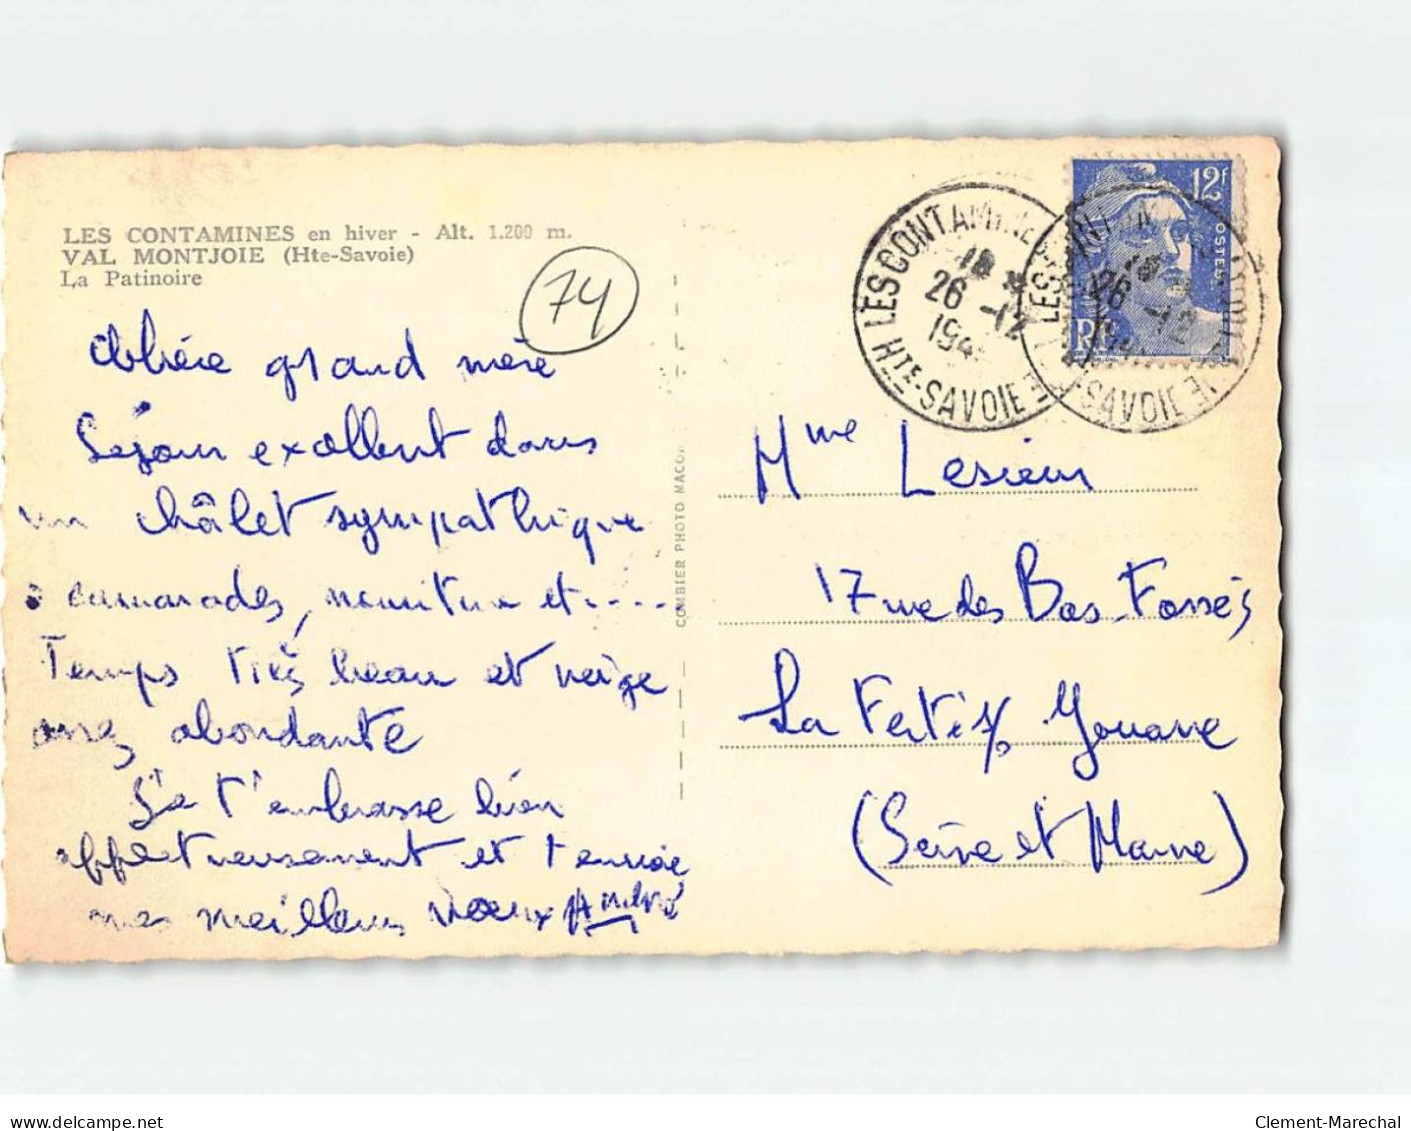 LES CONTAMINES en hiver - Alt. 1.200 m.
VAL MONTJOIE (Hte-Savoie)
La Patinoire
74
Chère grand mère
Séjour excellent dans
un châlet sympathique
camarades, nourriture et.....
Temps très beau et neige
assez abondante
Je t'embrasse bien
affectueusement et t'envoie
mes meilleurs voeux André
COMBIER PHOTO MACON
LES CONTAMINES
18
26 -12
194
HTE-SAVOIE
12F
POSTES
RF
26 -12
SAVOIE
Mme Lesieur
17 rue des Bas-Fossés
La Ferté s/s Jouarre
(Seine et Marne)
delcampe.net
Clement-Marechal